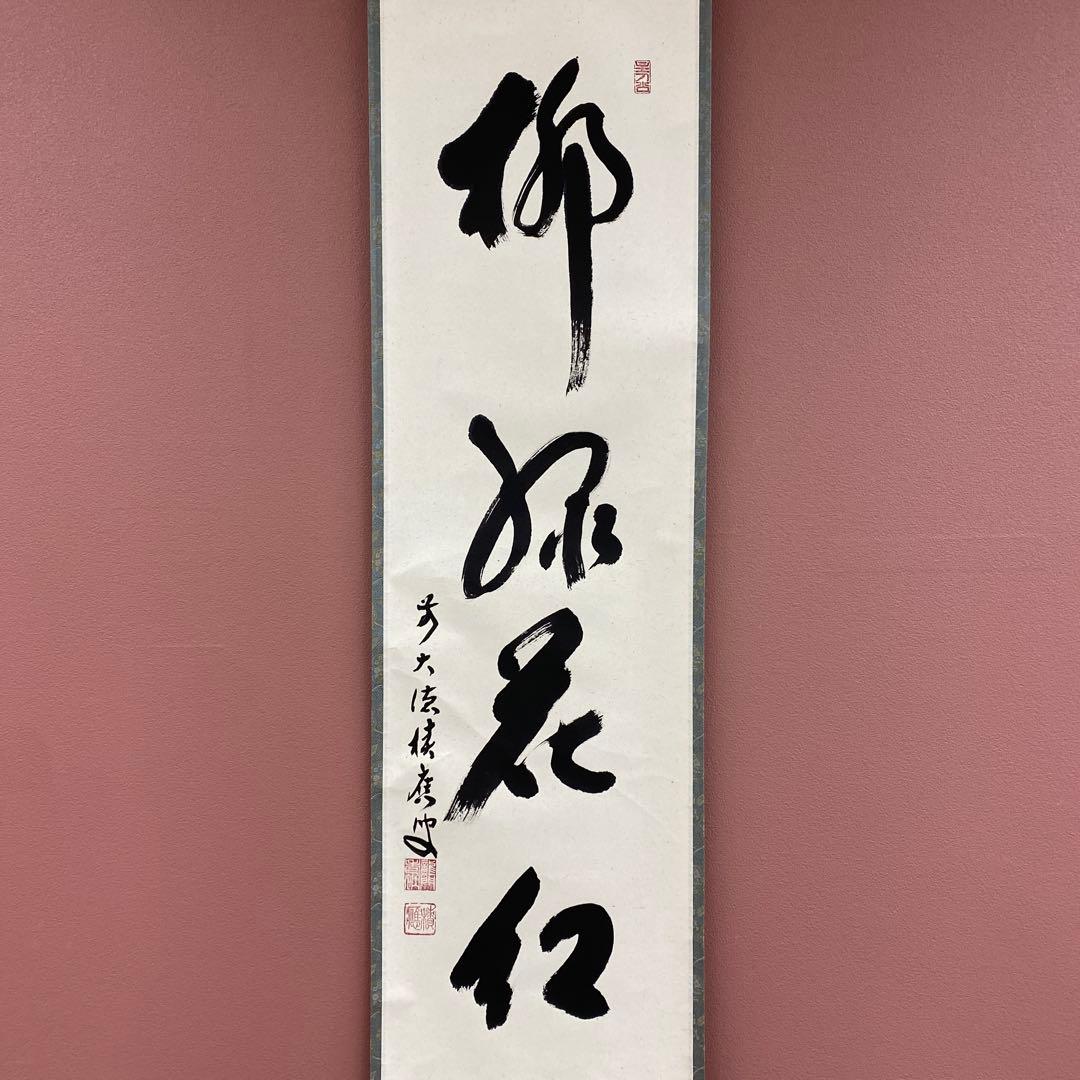 柳緑花紅
前大徳積應叟